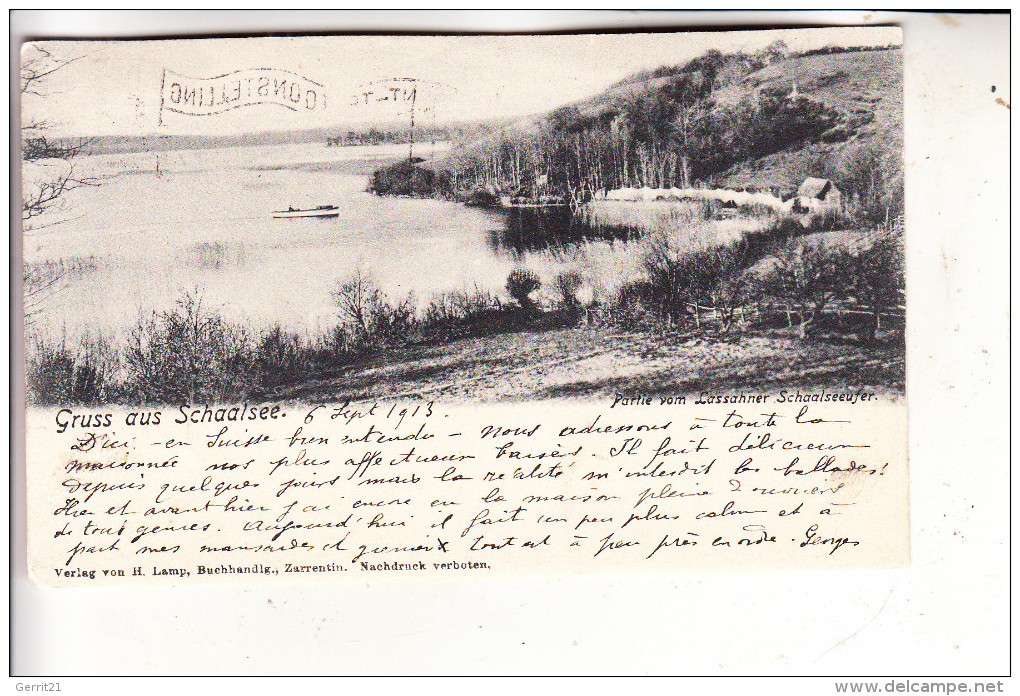 Partie vom Lassahner Schaalseeufer.
Gruss aus Schaalsee. 6 Sept 1913.
D'ici - en Suisse bien entendu - nous adressons à toute la
maisonnée nos plus affectueux baisers. Il fait délicieux
depuis quelques jours mais la réalité m'interdit les ballades!
Hier et avant hier j'ai encore eu la maison pleine d'ouvriers
de tous genres. Aujourd'hui il fait un peu plus calme et à
part mes mansardes et greniers tout est à peu près en ordre. Georges
Verlag von H. Lamp, Buchhandlg., Zarrentin. Nachdruck verboten.
Gerrit21
www.delcampe.net